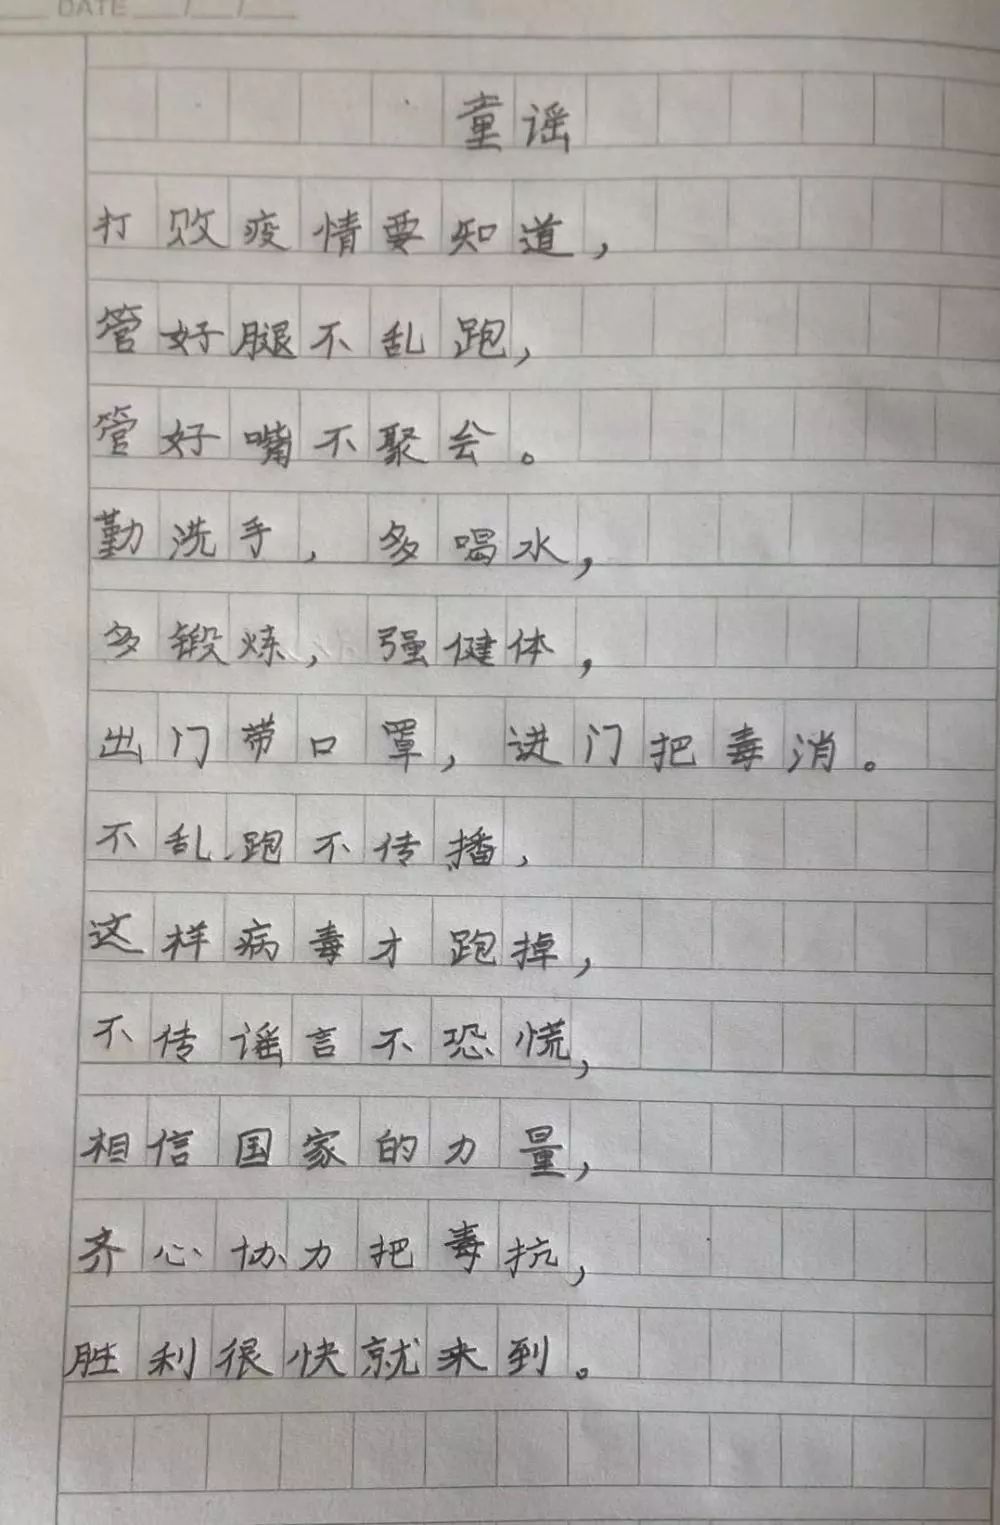 DATE ___/___/___
童谣
打败疫情要知道，
管好腿不乱跑，
管好嘴不聚会。
勤洗手，多喝水，
多锻炼，强健体，
出门带口罩，进门把毒消。
不乱跑不传播，
这样病毒才跑掉，
不传谣言不恐慌，
相信国家的力量，
齐心协力把毒抗，
胜利很快就来到。